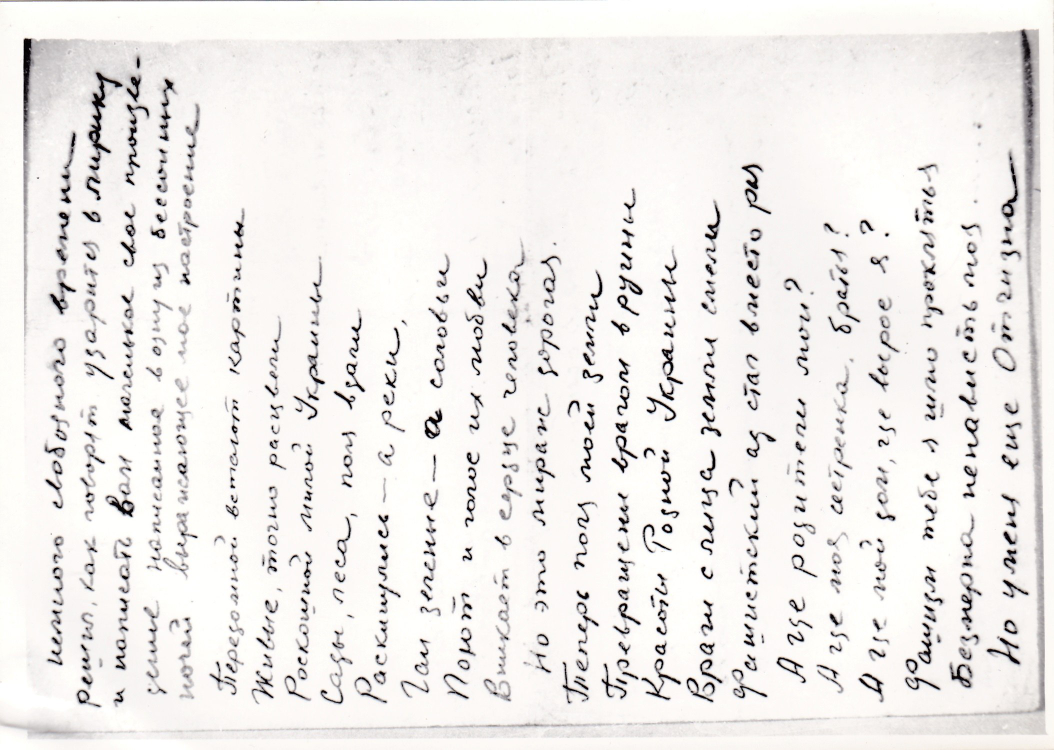 немного свободного времени
решил, как говорят ударится в лирику
и написать Вам маленькое свое произве-
дение написанное в одну из бессонных
ночей, выражающее мое настроение
Передомной встают картины
Живые, точно расцвели
Роскошной милой Украины
Сады, леса, поля вдали
Раскинулись — а реки,
Гаи зеленые — а соловьи
Поют и голос их любви
Вникает в сердце человека
Но это мираж дорогая.
Теперь поля моей земли
Превращены врагом в руины
Красоты Родной Украины
Враги с лица земли смели
Фашистский ад стал вместо рая
А где родители мои?
А где моя сестренка, братья?
А где мой дом, где вырос я?
Фашизм тебе я шлю проклятья
Безмерна ненависть моя...
Но у меня еще Отчизна